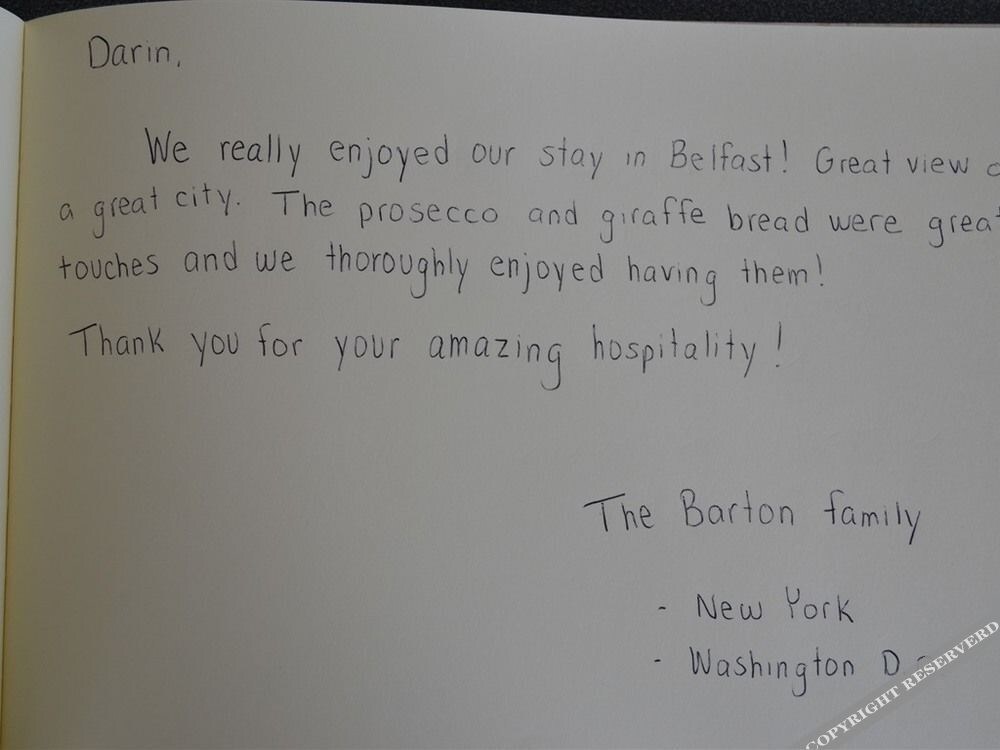 Darin,
We really enjoyed our stay in Belfast! Great view
a great city. The prosecco and giraffe bread were great
touches and we thoroughly enjoyed having them!
Thank you for your amazing hospitality!
The Barton family
- New York
- Washington D
COPYRIGHT RESERVERD